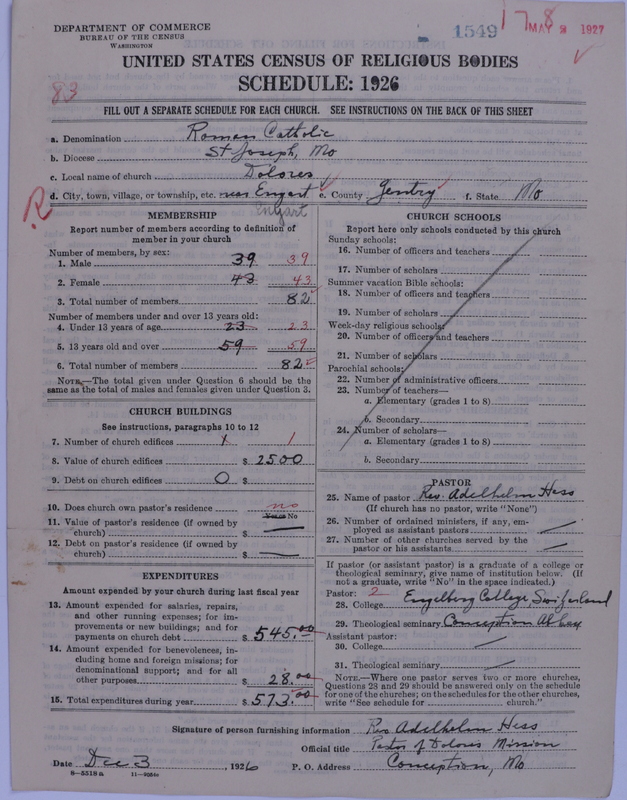 DEPARTMENT OF COMMERCE
BUREAU OF THE CENSUS
WASHINGTON
1549
178
MAY 3 1927
UNITED STATES CENSUS OF RELIGIOUS BODIES
SCHEDULE: 1926
83
FILL OUT A SEPARATE SCHEDULE FOR EACH CHURCH. SEE INSTRUCTIONS ON THE BACK OF THIS SHEET
a. Denomination Roman Catholic
b. Diocese St Joseph, Mo
c. Local name of church Dolores
R d. City, town, village, or township, etc. near Engart e. County Gentry f. State Mo
Engart
MEMBERSHIP
Report number of members according to definition of member in your church
Number of members, by sex:
1. Male 39 39
2. Female 43 43
3. Total number of members 82
Number of members under and over 13 years old:
4. Under 13 years of age 23 23
5. 13 years old and over 59 59
6. Total number of members 82
NOTE.—The total given under Question 6 should be the same as the total of males and females given under Question 3.
CHURCH BUILDINGS
See instructions, paragraphs 10 to 12
7. Number of church edifices 1 1
8. Value of church edifices $ 2500
9. Debt on church edifices 0 $
10. Does church own pastor's residence no
Yes or No
11. Value of pastor's residence (if owned by church) $
12. Debt on pastor's residence (if owned by church) $
EXPENDITURES
Amount expended by your church during last fiscal year
13. Amount expended for salaries, repairs, and other running expenses; for improvements or new buildings; and for payments on church debt $ 545.00
14. Amount expended for benevolences, including home and foreign missions; for denominational support; and for all other purposes $ 28.00
15. Total expenditures during year $ 573.00
CHURCH SCHOOLS
Report here only schools conducted by this church
Sunday schools:
16. Number of officers and teachers
17. Number of scholars
Summer vacation Bible schools:
18. Number of officers and teachers
19. Number of scholars
Week-day religious schools:
20. Number of officers and teachers
21. Number of scholars
Parochial schools:
22. Number of administrative officers
23. Number of teachers—
a. Elementary (grades 1 to 8)
b. Secondary
24. Number of scholars—
a. Elementary (grades 1 to 8)
b. Secondary
PASTOR
25. Name of pastor Rev. Adelhelm Hess
(If church has no pastor, write "None")
26. Number of ordained ministers, if any, employed as assistant pastors
27. Number of other churches served by the pastor or his assistants
If pastor (or assistant pastor) is a graduate of a college or theological seminary, give name of institution below. (If not a graduate, write "No" in the space indicated.)
Pastor: 2
28. College Engelberg College, Switzerland
29. Theological seminary Conception Abbey
Assistant pastor:
30. College
31. Theological seminary
NOTE.—Where one pastor serves two or more churches, Questions 28 and 29 should be answered only on the schedule for one of the churches; on the schedules for the other churches, write "See schedule for church."
Signature of person furnishing information Rev. Adelhelm Hess
Official title Pastor of Dolores Mission
Date Dec 3, 1926 P. O. Address Conception, Mo
8—5518a 11—9554